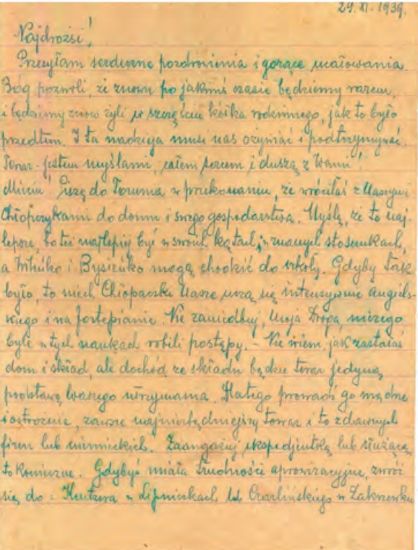 29. XI. 1939.
Najdrożsi!
Przesyłam serdeczne pozdrowienia i gorące ucałowania.
Bóg pozwoli, że znowu po jakimś czasie będziemy razem,
i będziemy znów żyli w szczęściu kółka rodzinnego, jak to było
przedtem. I ta nadzieja musi nas ożywiać i podtrzymywać.
Teraz jestem myślami, całem sercem i duszą z Wami!
Piszę do Torunia, w przekonaniu, że wróciłaś z Naszymi
Chłopczykami do domu i swego gospodarstwa. Myślę, że to naj-
lepsze, bo też najlepiej być w swoich kątach, w znanych stosunkach,
a i Bysieńko mogą chodzić do szkoły. Gdyby tak
było, to niech Chłopaczki Nasze uczą się intensywnie Angiel-
skiego i na fortepianie. Nie zaniedbuj, moja Droga, niczego
byle w tych naukach robili postępy. - Nie wiem jak zastałaś
dom i skład, ale dochód ze składu będzie teraz jedyną
podstawą Waszego utrzymania. Dlatego prowadź go mądrze
i ostrożnie, zawsze towar i to z dawnych
firm lub niemieckich. Zaangażuj ekspedjentkę lub służącą
to konieczne. Gdybyś miała trudności aprowizacyjne, zwróć
się do: w Lipnickach lub Czarlińskiego w Zakrzewku